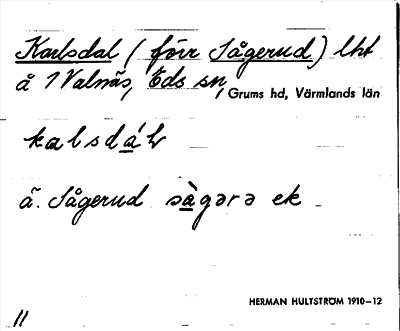 Karlsdal (förr Sågerud) lht
å 1 Valnäs, Eds sn, Grums hd, Värmlands län
kalsdáɫ
ä. Sågerud sàgərə ek
HERMAN HULTSTRÖM 1910–12
11